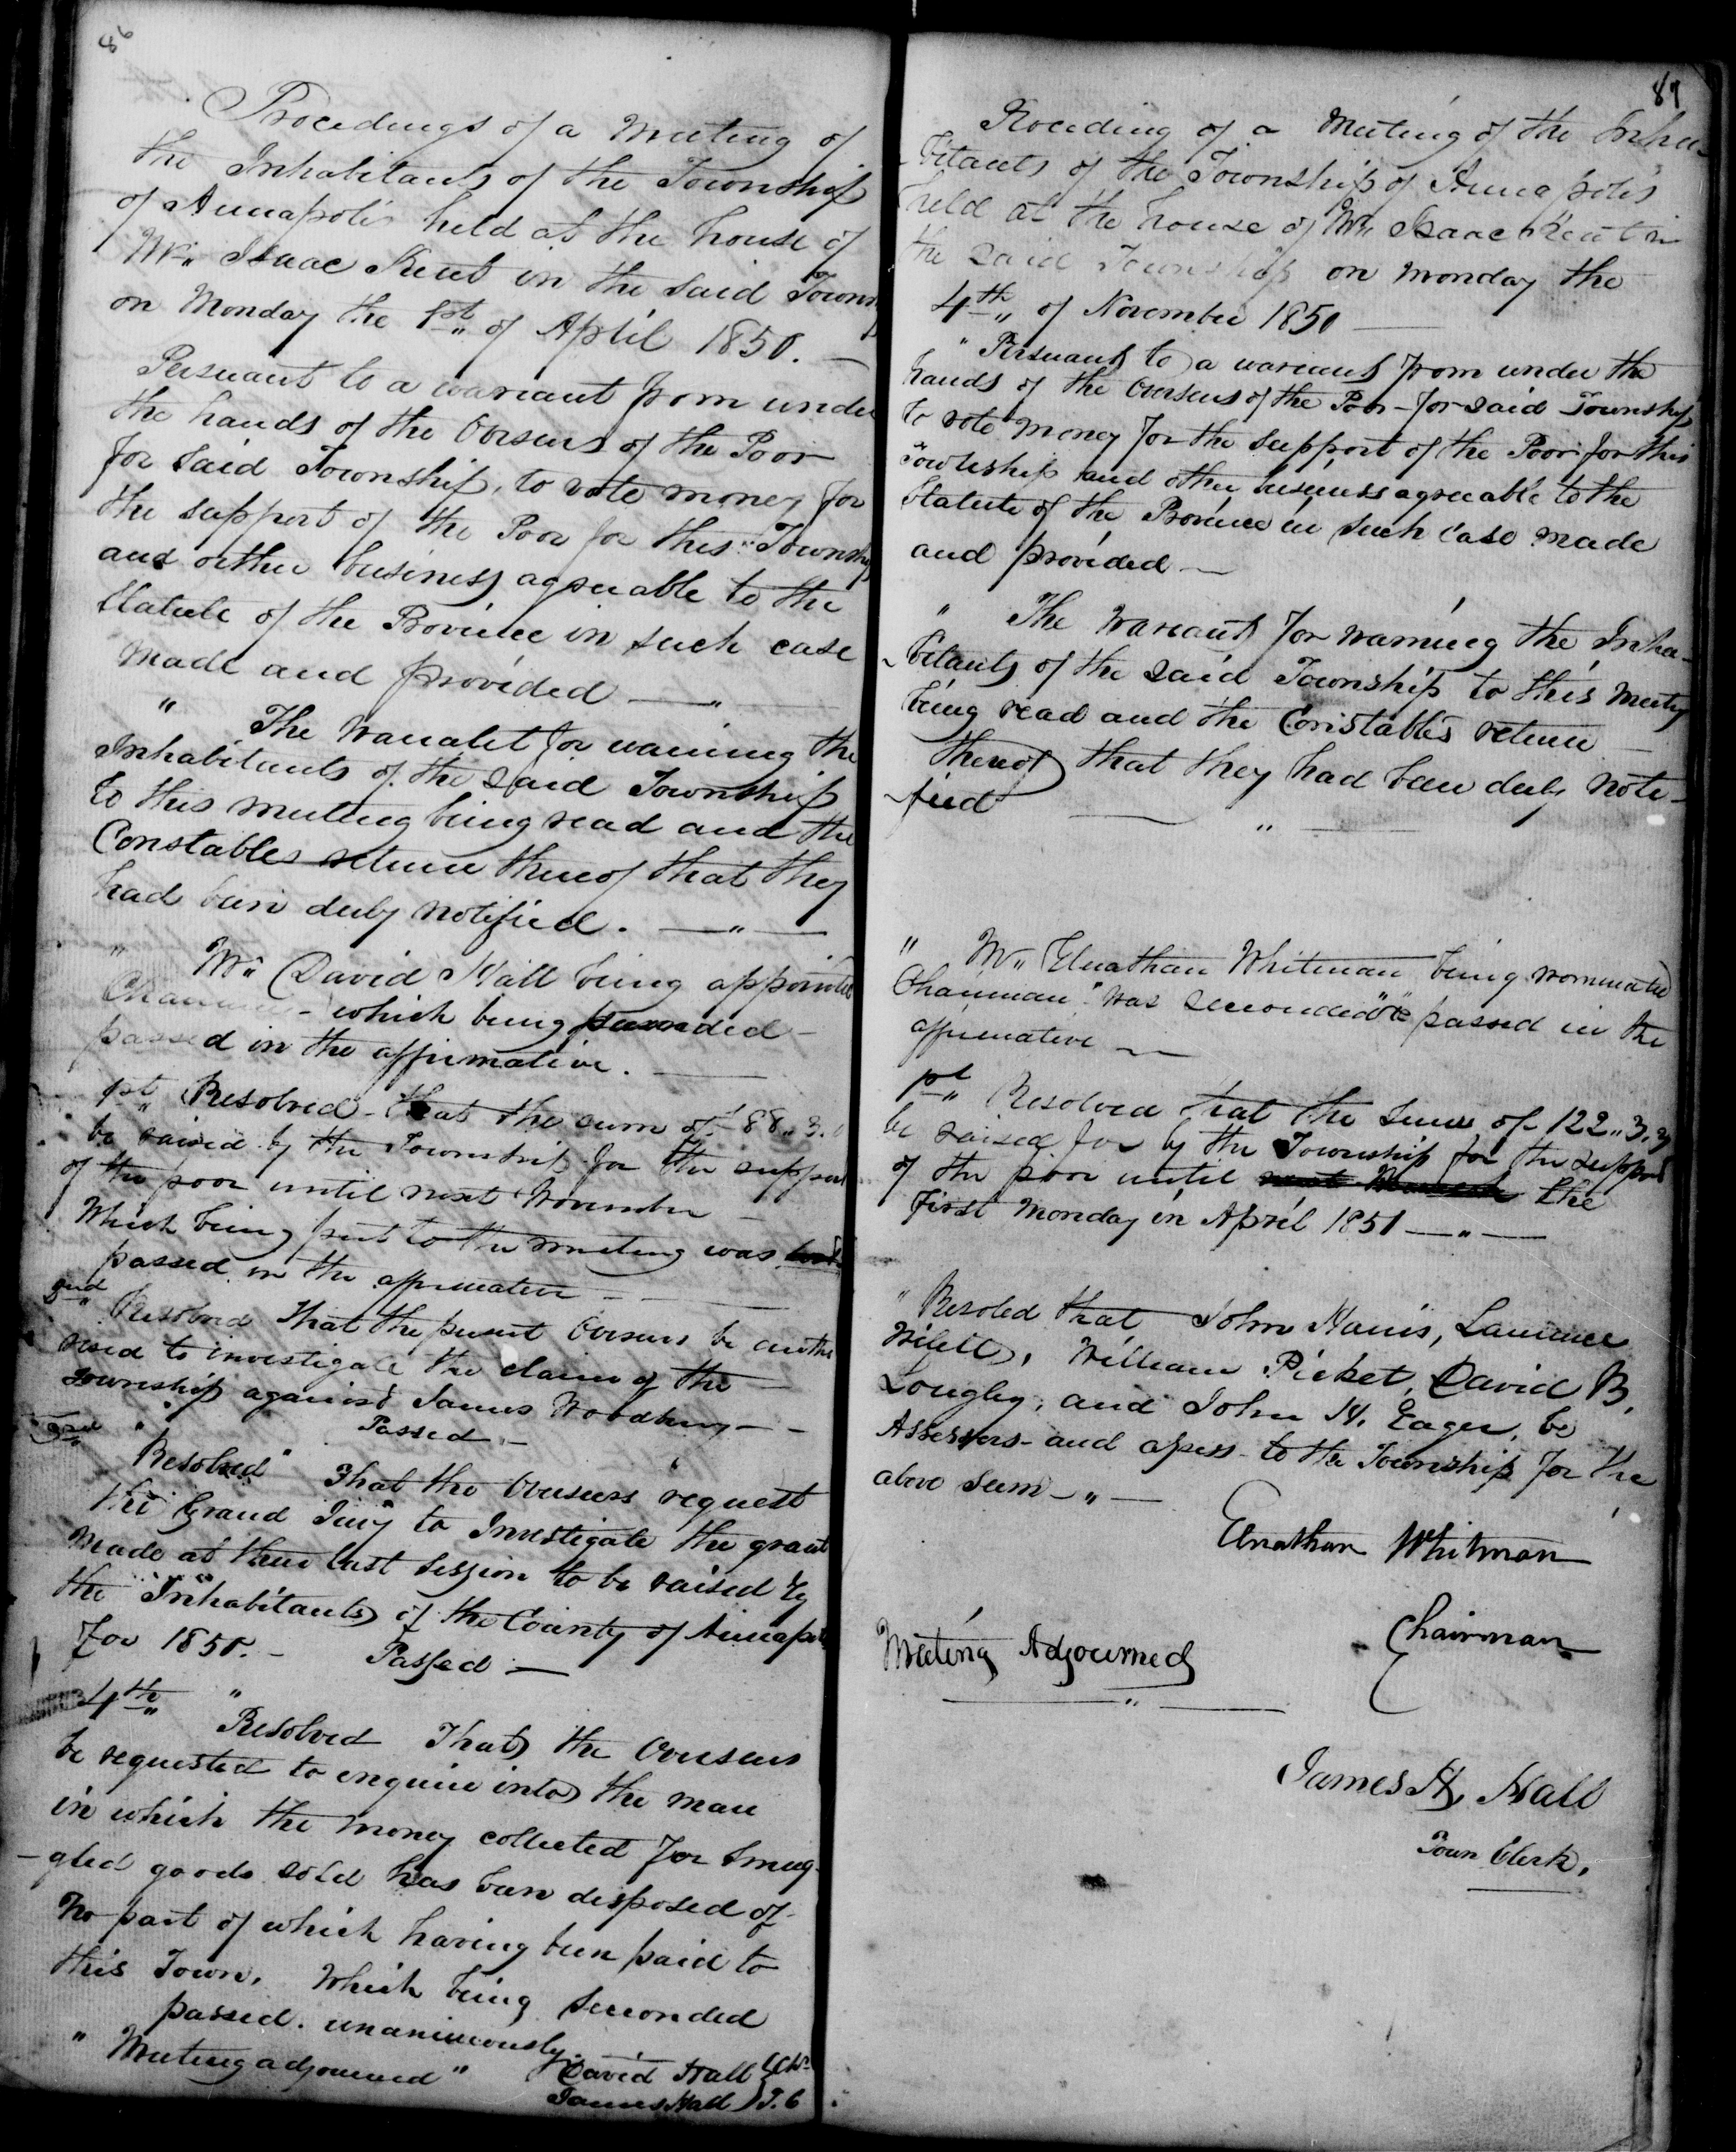 86
Procedings of a Meeting of
the Inhabitants of the Township
of Annapolis held at the house of
Mr. Isaac Kent in the said Towns
on Monday the 1st of April 1850. —
Persuant to a warrant from under
the hands of the Overseers of the Poor
for said Township, to vote money for
the support of the Poor for this Township
and other business agreeable to the
Statute of the Province in such case
made and provided — " —
" The for warning the
Inhabitants of the said Township
to this meeting being read and the
Constables return thereof that they
had been duly notified. — " —
" Mr. David Hall being appointed
Chairman - which being seconded -
passed in the affirmative. —
1st Resolved - that the sum of 88..3.
be raised by the Township for the support
of the poor until next November —
Which being put to the meeting was
passed in the affirmative —
2nd " Resolved that the present Overseers be autho
rised to investigate the claim of the —
Township against James Woodbury —
Passed —
3rd " Resolved " That the Overseers request
the Grand Jury to Investigate the grant
made at their last Session to be raised by
the Inhabitants of the County of Annapolis
for 1850. - Passed —
4th " Resolved That the Overseers
be requested to enquire into the man
in which the money collected for Smug-
-gled goods sold has been disposed of -
no part of which having been paid to
this Town. Which being seconded
passed. unanimously.
" Meeting adjourned " David Hall Chn
James Hall T. C
87
Proceding of a Meeting of the Inha-
-bitants of the Township of Annapolis
held at the house of Mr. Isaac Kent in
the said Township on Monday the
4th of November 1850 —
" Persuant to a warrant from under the
hands of the Overseers of the Poor - for said Township
to vote money for the support of the Poor for this
Township and other business agreeable to the
Statute of the Province in such case made
and provided —
" The Warrant for warning the Inha-
-bitants of the said Township to this Meeting
being read and the Constables return —
thereof that they had been duly noti-
-fied — " —
" Mr. Elnathan Whitman being nominated
Chairman " was seconded & passed in the
affirmative —
1st Resolved that the Sum of 122..3.3
be raised for by the Township for the support
of the poor until the
first Monday in April 1851 — " —
" Resoled that John Harris, Laurence
Wilett, William Picket, David B.
Longley, and John H. Eager, be
Assessors - and assess - to the Township for the
above Sum — " —
Elnathan Whitman
Chairman
Meeting Adjourned
— " —
James H. Hall
Town Clerk.